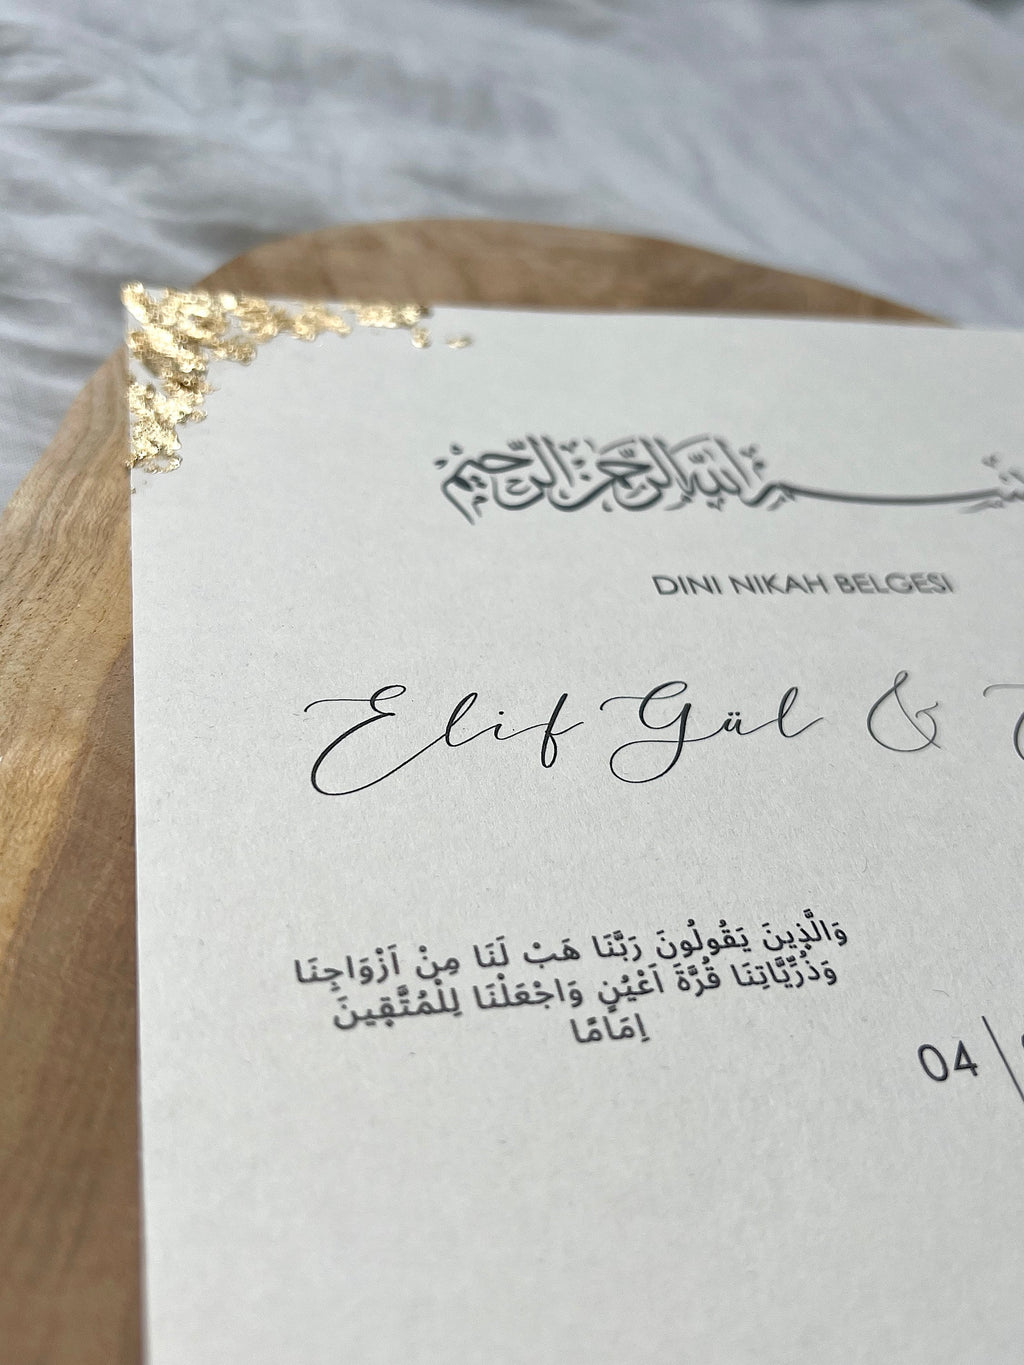 بسم الله الرحمن الرحيم
DINI NIKAH BELGESI
Elif Gül &
وَالَّذِينَ يَقُولُونَ رَبَّنَا هَبْ لَنَا مِنْ اَزْوَاجِنَا
وَذُرِّيَّاتِنَا قُرَّةَ اَعْيُنٍ وَاجْعَلْنَا لِلْمُتَّقِينَ
اِمَامًا
04 |